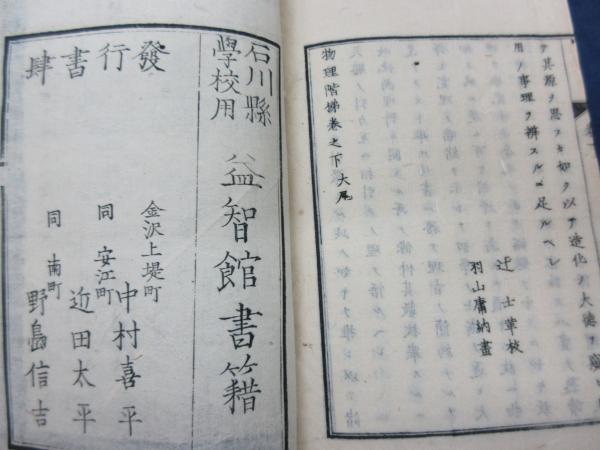 テ其原ヲ思フキ如ク以テ造化ノ大徳ヲ
用ノ事理ヲ辨スルニ足ルヘシ
辻士革校
羽山庸納畫
物理階梯卷之下大尾
石川縣
學校用
益智館書籍
發行書肆
金沢上堤町
中村喜平
同安江町
近田太平
同南町
野島信吉